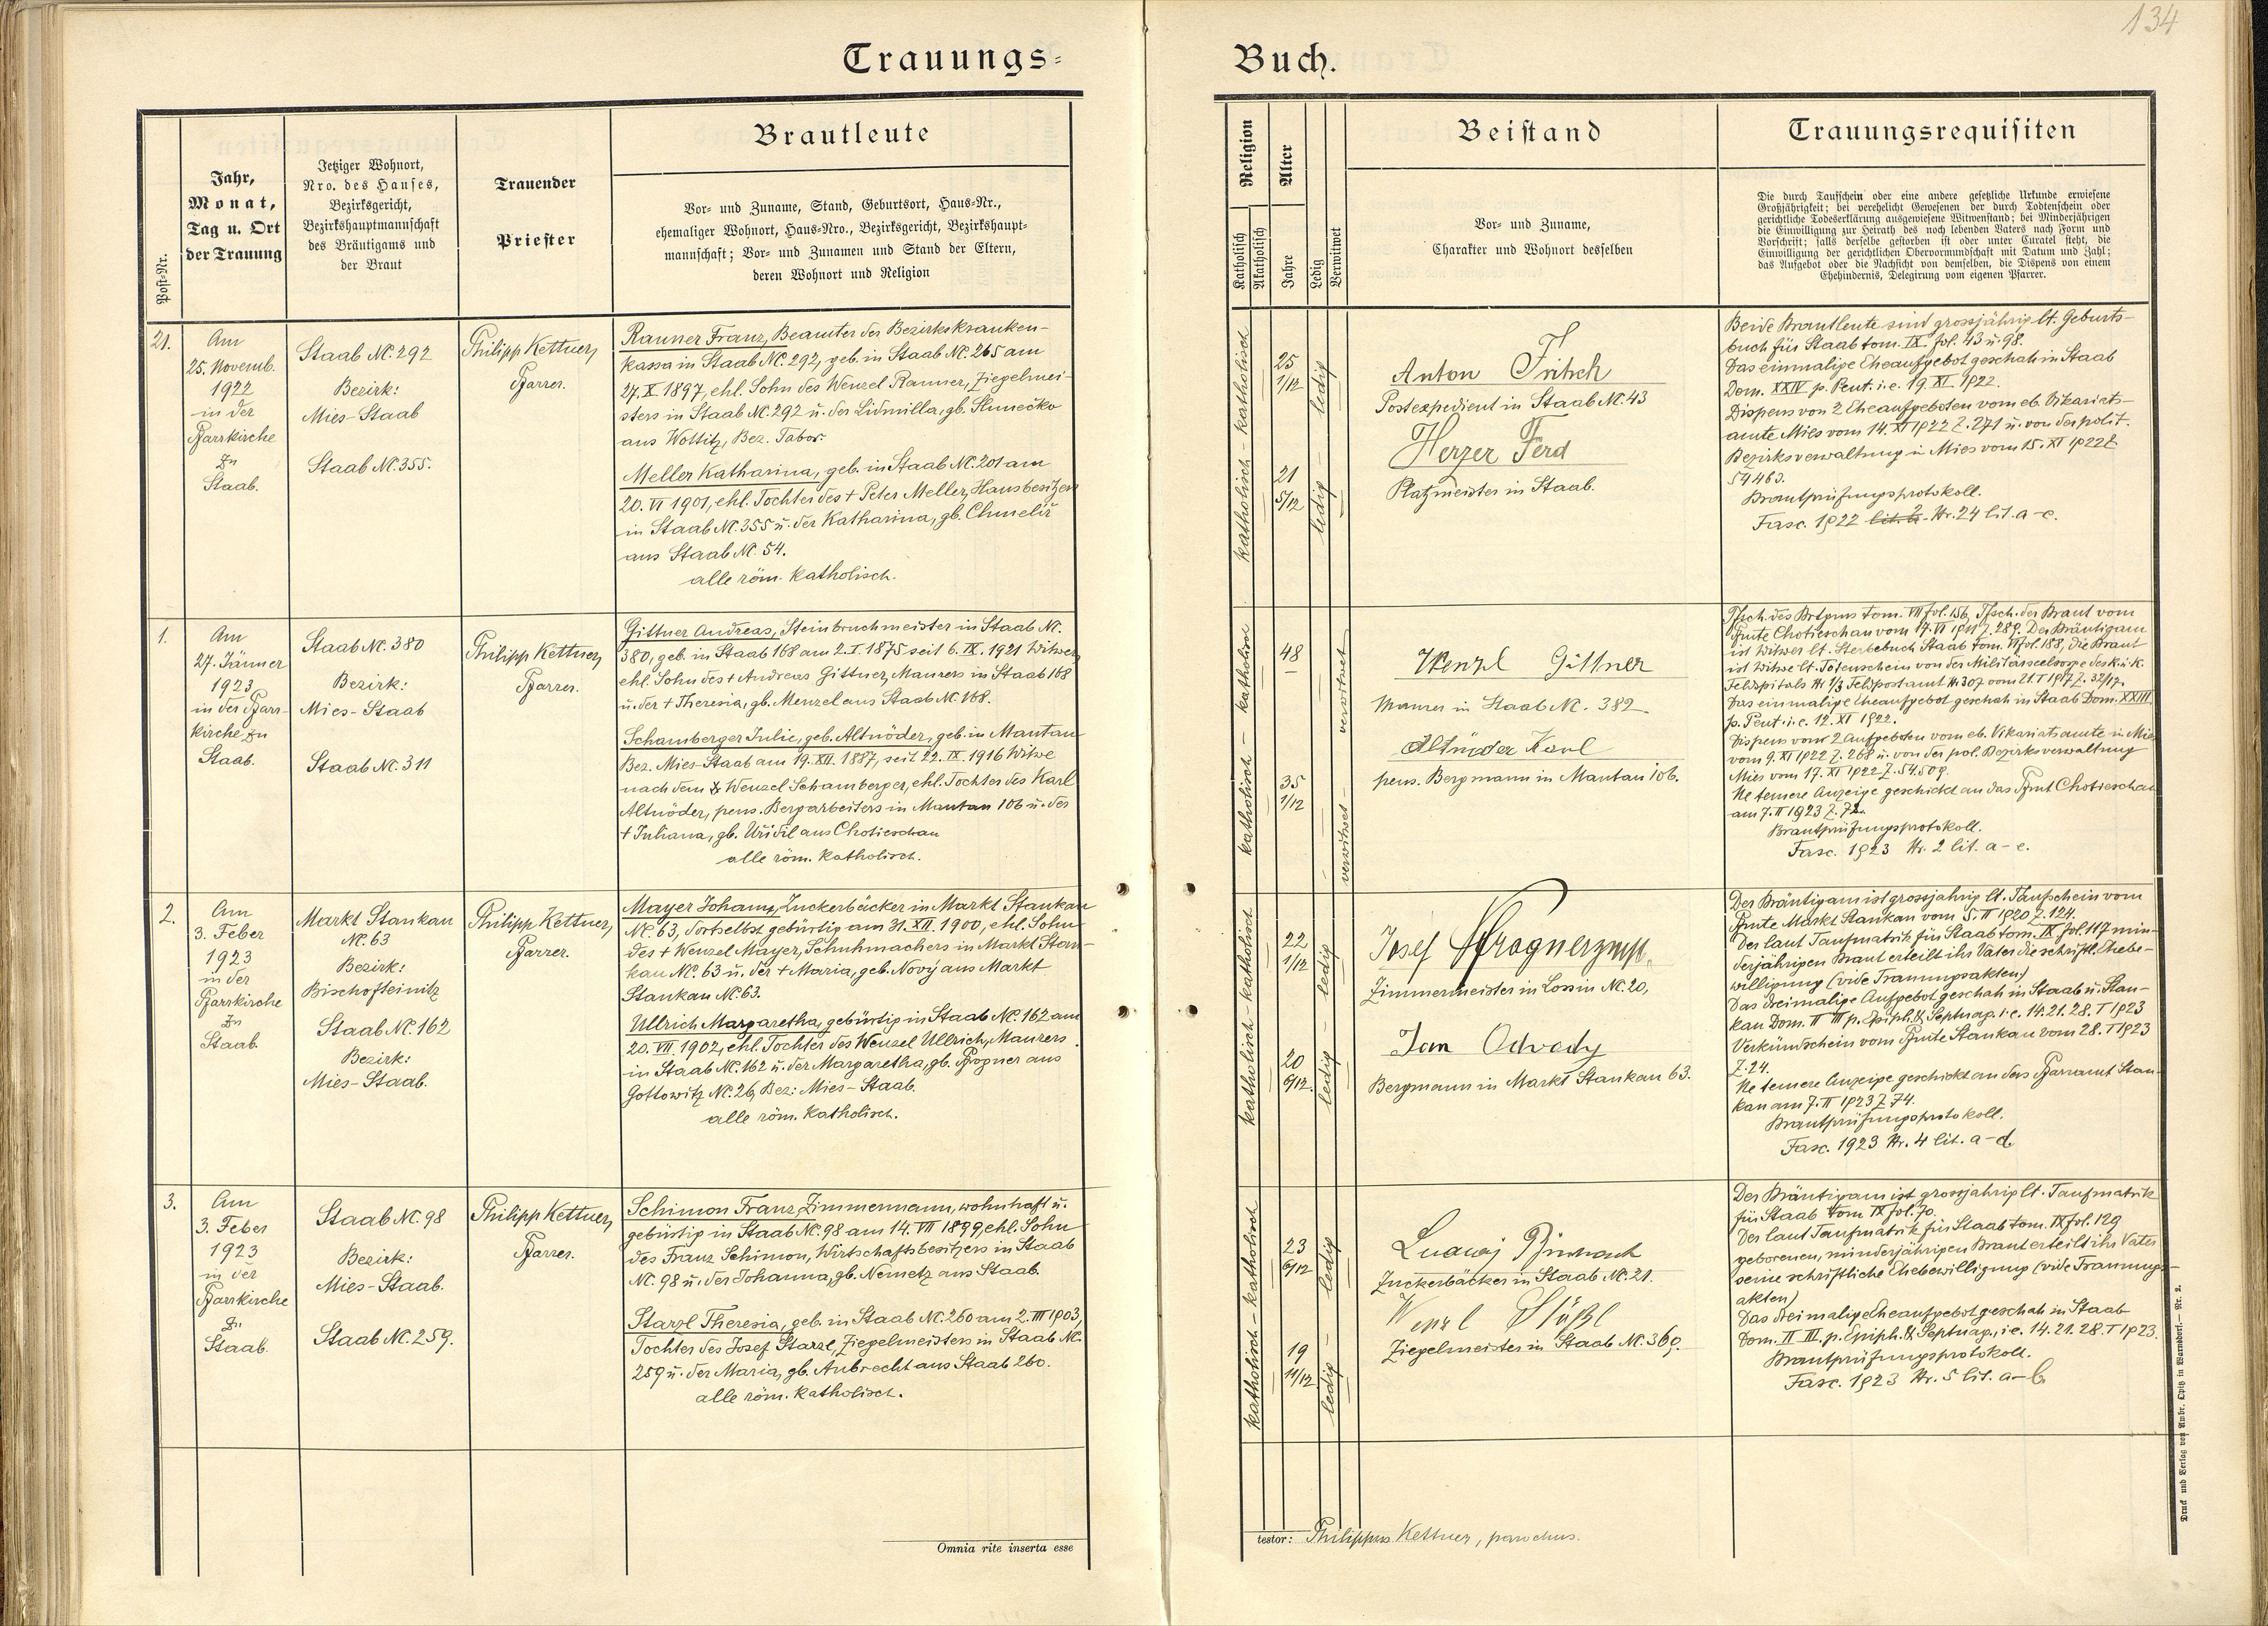 134
Trauungs-
Buch.
Post-Nr.
Jahr,
Monat,
Tag u. Ort
der Trauung
Jetziger Wohnort,
Nro. des Hauses,
Bezirksgericht,
Bezirkshauptmannschaft
des Bräutigams und
der Braut
Trauender
Priester
Brautleute
Vor- und Zuname, Stand, Geburtsort, Haus-Nr.,
ehemaliger Wohnort, Haus-Nro., Bezirksgericht, Bezirkshaupt-
mannschaft; Vor- und Zunamen und Stand der Eltern,
deren Wohnort und Religion
Religion
Katholisch
Akatholisch
Alter
Jahre
Ledig
Verwitwet
Beistand
Vor- und Zuname,
Charakter und Wohnort desselben
Trauungsrequisiten
Die durch Taufschein oder eine andere gesetzliche Urkunde erwiesene
Großjährigkeit; bei verehelicht Gewesenen der durch Todtenschein oder
gerichtliche Todeserklärung ausgewiesene Witwenstand; bei Minderjährigen
die Einwilligung zur Heirath des noch lebenden Vaters nach Form und
Vorschrift; falls derselbe gestorben ist oder unter Curatel steht, die
Einwilligung der gerichtlichen Obervormundschaft mit Datum und Zahl;
das Aufgebot oder die Nachsicht von demselben, die Dispens von einem
Ehehindernis, Delegirung vom eigenen Pfarrer.
21.
Am
25. Novemb.
1922
in der
Pfarrkirche
zu
Staab.
Staab Nc. 292
Bezirk:
Mies-Staab
Staab Nc. 355.
Philipp Kettner,
Pfarrer.
Rauner Franz, Beamter der Bezirkskranken-
kassa in Staab Nc. 292, geb. in Staab Nc. 265 am
27. X 1897, ehl. Sohn des Wenzel Rauner, Ziegelmei-
sters in Staab Nc. 292 u. der Lidmilla, gb. Slunečko
aus Wottitz, Bez. Tabor.
Meller Katharina, geb. in Staab Nc. 201 am
20. VI 1901, ehl. Tochter des + Peter Meller, Hausbesitzers
in Staab Nc. 355 u. der Katharina, gb. Chmelíř
aus Staab Nc. 54.
alle röm. katholisch.
katholisch - katholisch
25
1/12
ledig
21
5/12
ledig
Anton Fritsch
Postexpedient in Staab Nc. 43
Herzer Ferd
Platzmeister in Staab.
Beide Brautleute sind grossjährig lt. Geburts-
buch für Staab tom. IX. fol. 43 u. 98.
Das einmalige Eheaufgebot geschah in Staab
Dom. XXIV p. Pent. i.e. 19. XI. 1922.
Dispens von 2 Eheaufgeboten vom eb. Vikariats-
amte Mies vom 14. XI 1922 Z. 271 u. von der polit.
Bezirksverwaltung in Mies vom 15. XI 1922 Z
54463.
Brautprüfungsprotokoll.
Fasc. 1922 Nr. 24 lit. a-c.
1.
Am
27. Jänner
1923
in der Pfarr-
kirche zu
Staab.
Staab Nc. 380
Bezirk:
Mies-Staab
Staab Nc. 311
Philipp Kettner,
Pfarrer.
Gittner Andreas, Steinbruchmeister in Staab Nc.
380, geb. in Staab 168 am 2. I. 1875 seit 6. IX. 1921 Witwer
ehl. Sohn des + Andreas Gittner, Maurers in Staab 168
u. der + Theresia, gb. Menzel aus Staab Nc. 168.
Schamberger Julie, geb. Altnöder, geb. in Mantau
Bez. Mies-Staab am 19. XII. 1887, seit 22. IX. 1916 Witwe
nach dem Wenzel Schamberger, ehl. Tochter des Karl
Altnöder, pens. Bergarbeiters in Mantau 106 u. der
+ Juliana, gb. Uřídil aus Chotieschau
alle röm. katholisch.
katholisch - katholisch
48
verwitwet
35
1/12
verwitwet
Wenzl Gittner
Maurer in Staab Nc. 382.
Altnöder Karl
pens. Bergmann in Mantau 106.
Tfsch. des Brtgms tom. VII fol. 156, Tfsch. der Braut vom
Pfmte Chotieschau vom 17. VI 1911 Z. 289. Der Bräutigam
ist Witwer lt. Sterbebuch Staab tom. VI fol. 188, die Braut
ist Witwe lt. Totenschein von der Militärseelsorge des k.u.k.
Feldspitals Nr. 1/3 Feldpostamt Nr. 307 vom 21. I 1917 Z. 32/17.
Das einmalige Eheaufgebot geschah in Staab Dom. XXIII
p. Pent. i.e. 12. XI 1922.
Dispens von 2 Aufgeboten vom eb. Vikariatsamte in Mies
vom 9. XI 1922 Z. 268 u. von der pol. Bezirksverwaltung
Mies vom 17. XI 1922 Z. 54.509.
Ne temere Anzeige geschickt an das Pfmt Chotieschau
am 7. II 1923 Z. 72.
Brautprüfungsprotokoll.
Fasc. 1923 Nr. 2 lit. a-e.
2.
Am
3. Feber
1923
in der
Pfarrkirche
zu
Staab.
Markt Stankau
Nc. 63
Bezirk:
Bischofteinitz
Staab Nc. 162
Bezirk:
Mies-Staab.
Philipp Kettner,
Pfarrer.
Mayer Johann, Zuckerbäcker in Markt Stankau
Nc. 63, dortselbst gebürtig am 31. XII. 1900, ehl. Sohn
des + Wenzel Mayer, Schuhmachers in Markt Stan-
kau Nc. 63 u. der + Maria, geb. Nový aus Markt
Stankau Nc. 63.
Ullrich Margaretha, gebürtig in Staab Nc. 162 am
20. VII. 1902, ehl. Tochter des Wenzel Ullrich, Maurers
in Staab Nc. 162 u. der Margaretha, gb. Pfogner aus
Gottowitz Nc. 26, Bez: Mies-Staab.
alle röm. katholisch.
katholisch - katholisch
22
1/12
ledig
20
6/12
ledig
Josef
Zimmermeister in Lossin Nc. 20,
Jan Odvody
Bergmann in Markt Stankau 63.
Der Bräutigam ist grossjährig lt. Taufschein vom
Pfmte Markt Stankau vom 5. II 1920 Z. 124.
Der laut Taufmatrik für Staab tom. IX fol. 117 min-
derjährigen Braut erteilt ihr Vater die schriftl. Ehebe-
willigung (vide Trauungsakten)
Das dreimalige Aufgebot geschah in Staab u. Stan-
kau Dom. II III p. Epiph. & Septuag. i.e. 14. 21. 28. I 1923
Verkündschein vom Pfmte Stankau vom 28. I 1923
Z. 24.
Ne temere Anzeige geschickt an das Pfarramt Stan-
kau am 7. II 1923 Z. 74.
Brautprüfungsprotokoll.
Fasc. 1923 Nr. 4 lit. a-d.
3.
Am
3. Feber
1923
in der
Pfarrkirche
zu
Staab.
Staab Nc. 98
Bezirk:
Mies-Staab.
Staab Nc. 259.
Philipp Kettner,
Pfarrer.
Schimon Franz, Zimmermann, wohnhaft u.
gebürtig in Staab Nc. 98 am 14. VII 1899, ehl. Sohn
des Franz Schimon, Wirtschaftsbesitzers in Staab
Nc. 98 u. der Johanna, gb. Nemetz aus Staab.
Starzl Theresia, geb. in Staab Nc. 260 am 2. III 1903,
Tochter des Josef Starzl, Ziegelmeisters in Staab Nc.
259 u. der Maria, gb. Aubrecht aus Staab 260.
alle röm. katholisch.
katholisch - katholisch
23
6/12
ledig
19
11/12
ledig
Ludwig
Zuckerbäcker in Staab Nc. 21.
Wenzl
Ziegelmeister in Staab Nc. 369.
Der Bräutigam ist grossjährig lt. Taufmatrik
für Staab tom IX fol. 70.
Der laut Taufmatrik für Staab tom. IX fol. 129
geborenen, minderjährigen Braut erteilt ihr Vater
seine schriftliche Ehebewilligung (vide Trauungs-
akten)
Das dreimalige Eheaufgebot geschah in Staab
Dom. II III. p. Epiph. & Septuag., i.e. 14. 21. 28. I 1923.
Brautprüfungsprotokoll.
Fasc. 1923 Nr. 5 lit. a-b
Omnia rite inserta esse
testor: Philippus Kettner, parochus.
Druck und Verlag von Ambr. Opitz in Warnsdorf. — Nr. 2.